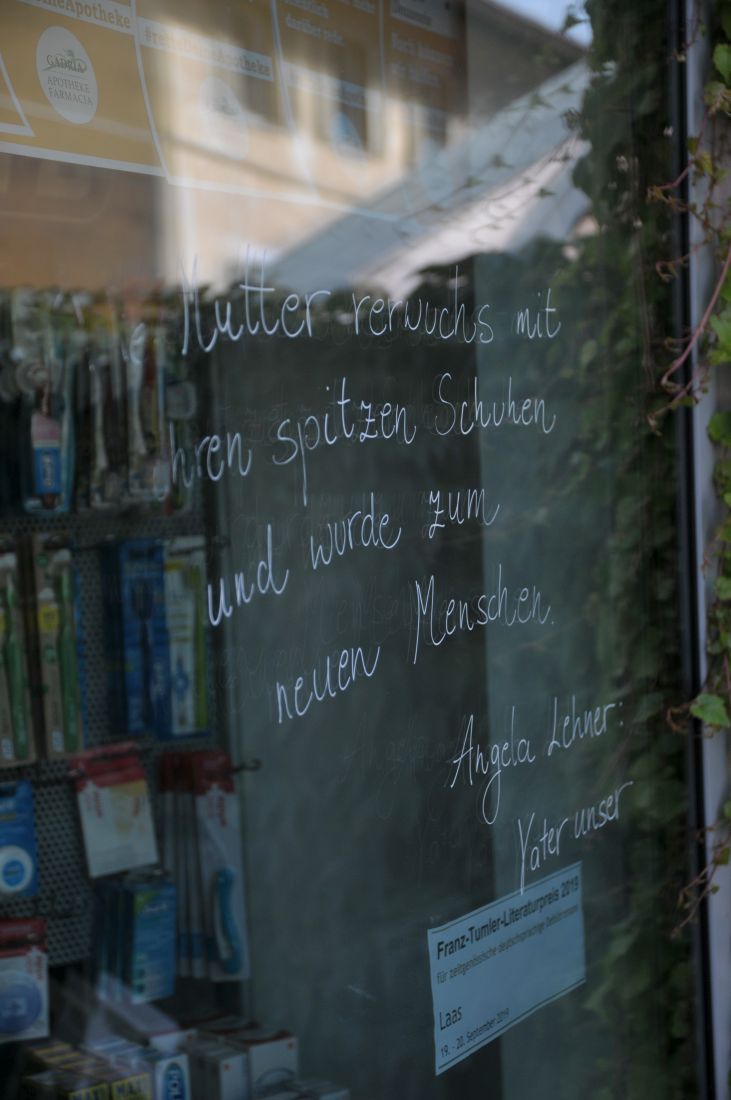 #reineApotheke
GADRIA
APOTHEKE
FARMACIA
Mutter verwuchs mit
ihren spitzen Schuhen
und wurde zum
neuen Menschen.
Angela Lehner:
Vater unser
Franz-Tumler-Literaturpreis 2019
für zeitgenössische deutschsprachige Debütromane
Laas
19. - 20. September 2019